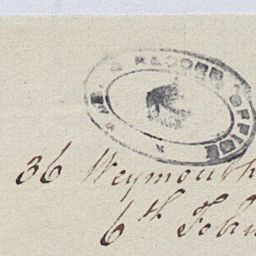 RECORD OFFICE
36 Weymouth
6th Febru